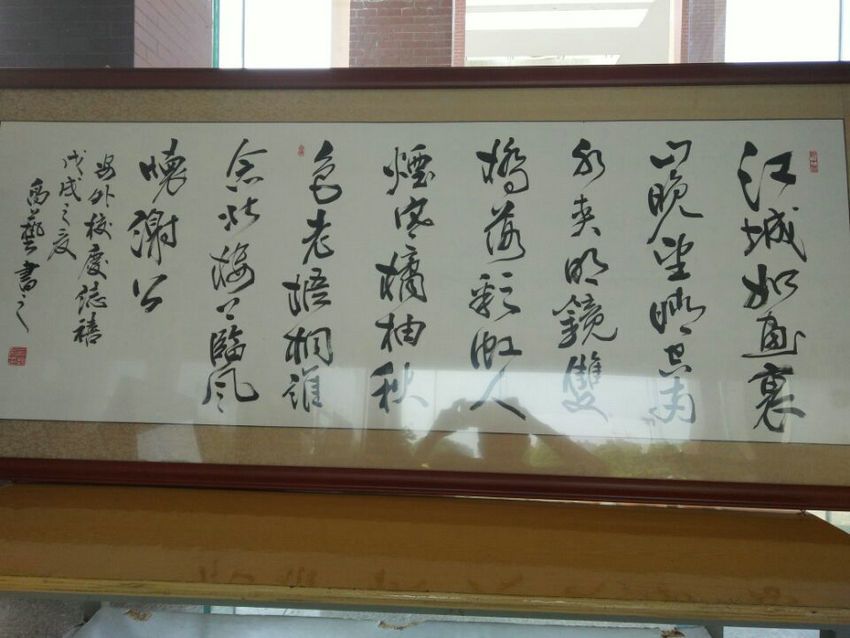 江城如畫裏
山晚望晴空兩
水夾明鏡雙
橋落彩虹人
煙寒橘柚秋
色老梧桐誰
念北樓上臨風
懷謝公
外校慶誌禧
戊戌之夏
禹藝書之